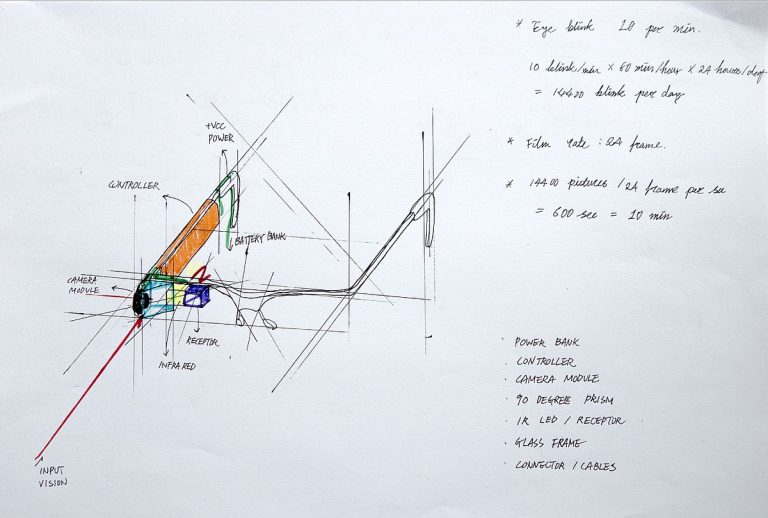 * Eye blink 10 per min.
10 blink/min x 60 min/hour x 24 hours/day
= 14400 blink per day
* Film rate : 24 frame.
* 14400 pictures / 24 frame per sec
= 600 sec = 10 min
+VCC
POWER
CONTROLLER
BATTERY BANK
CAMERA
MODULE
RECEPTOR
INFRARED
INPUT
VISION
· POWER BANK
· CONTROLLER
· CAMERA MODULE
· 90 DEGREE PRISM
· IR LED / RECEPTOR
· GLASS FRAME
· CONNECTOR / CABLES